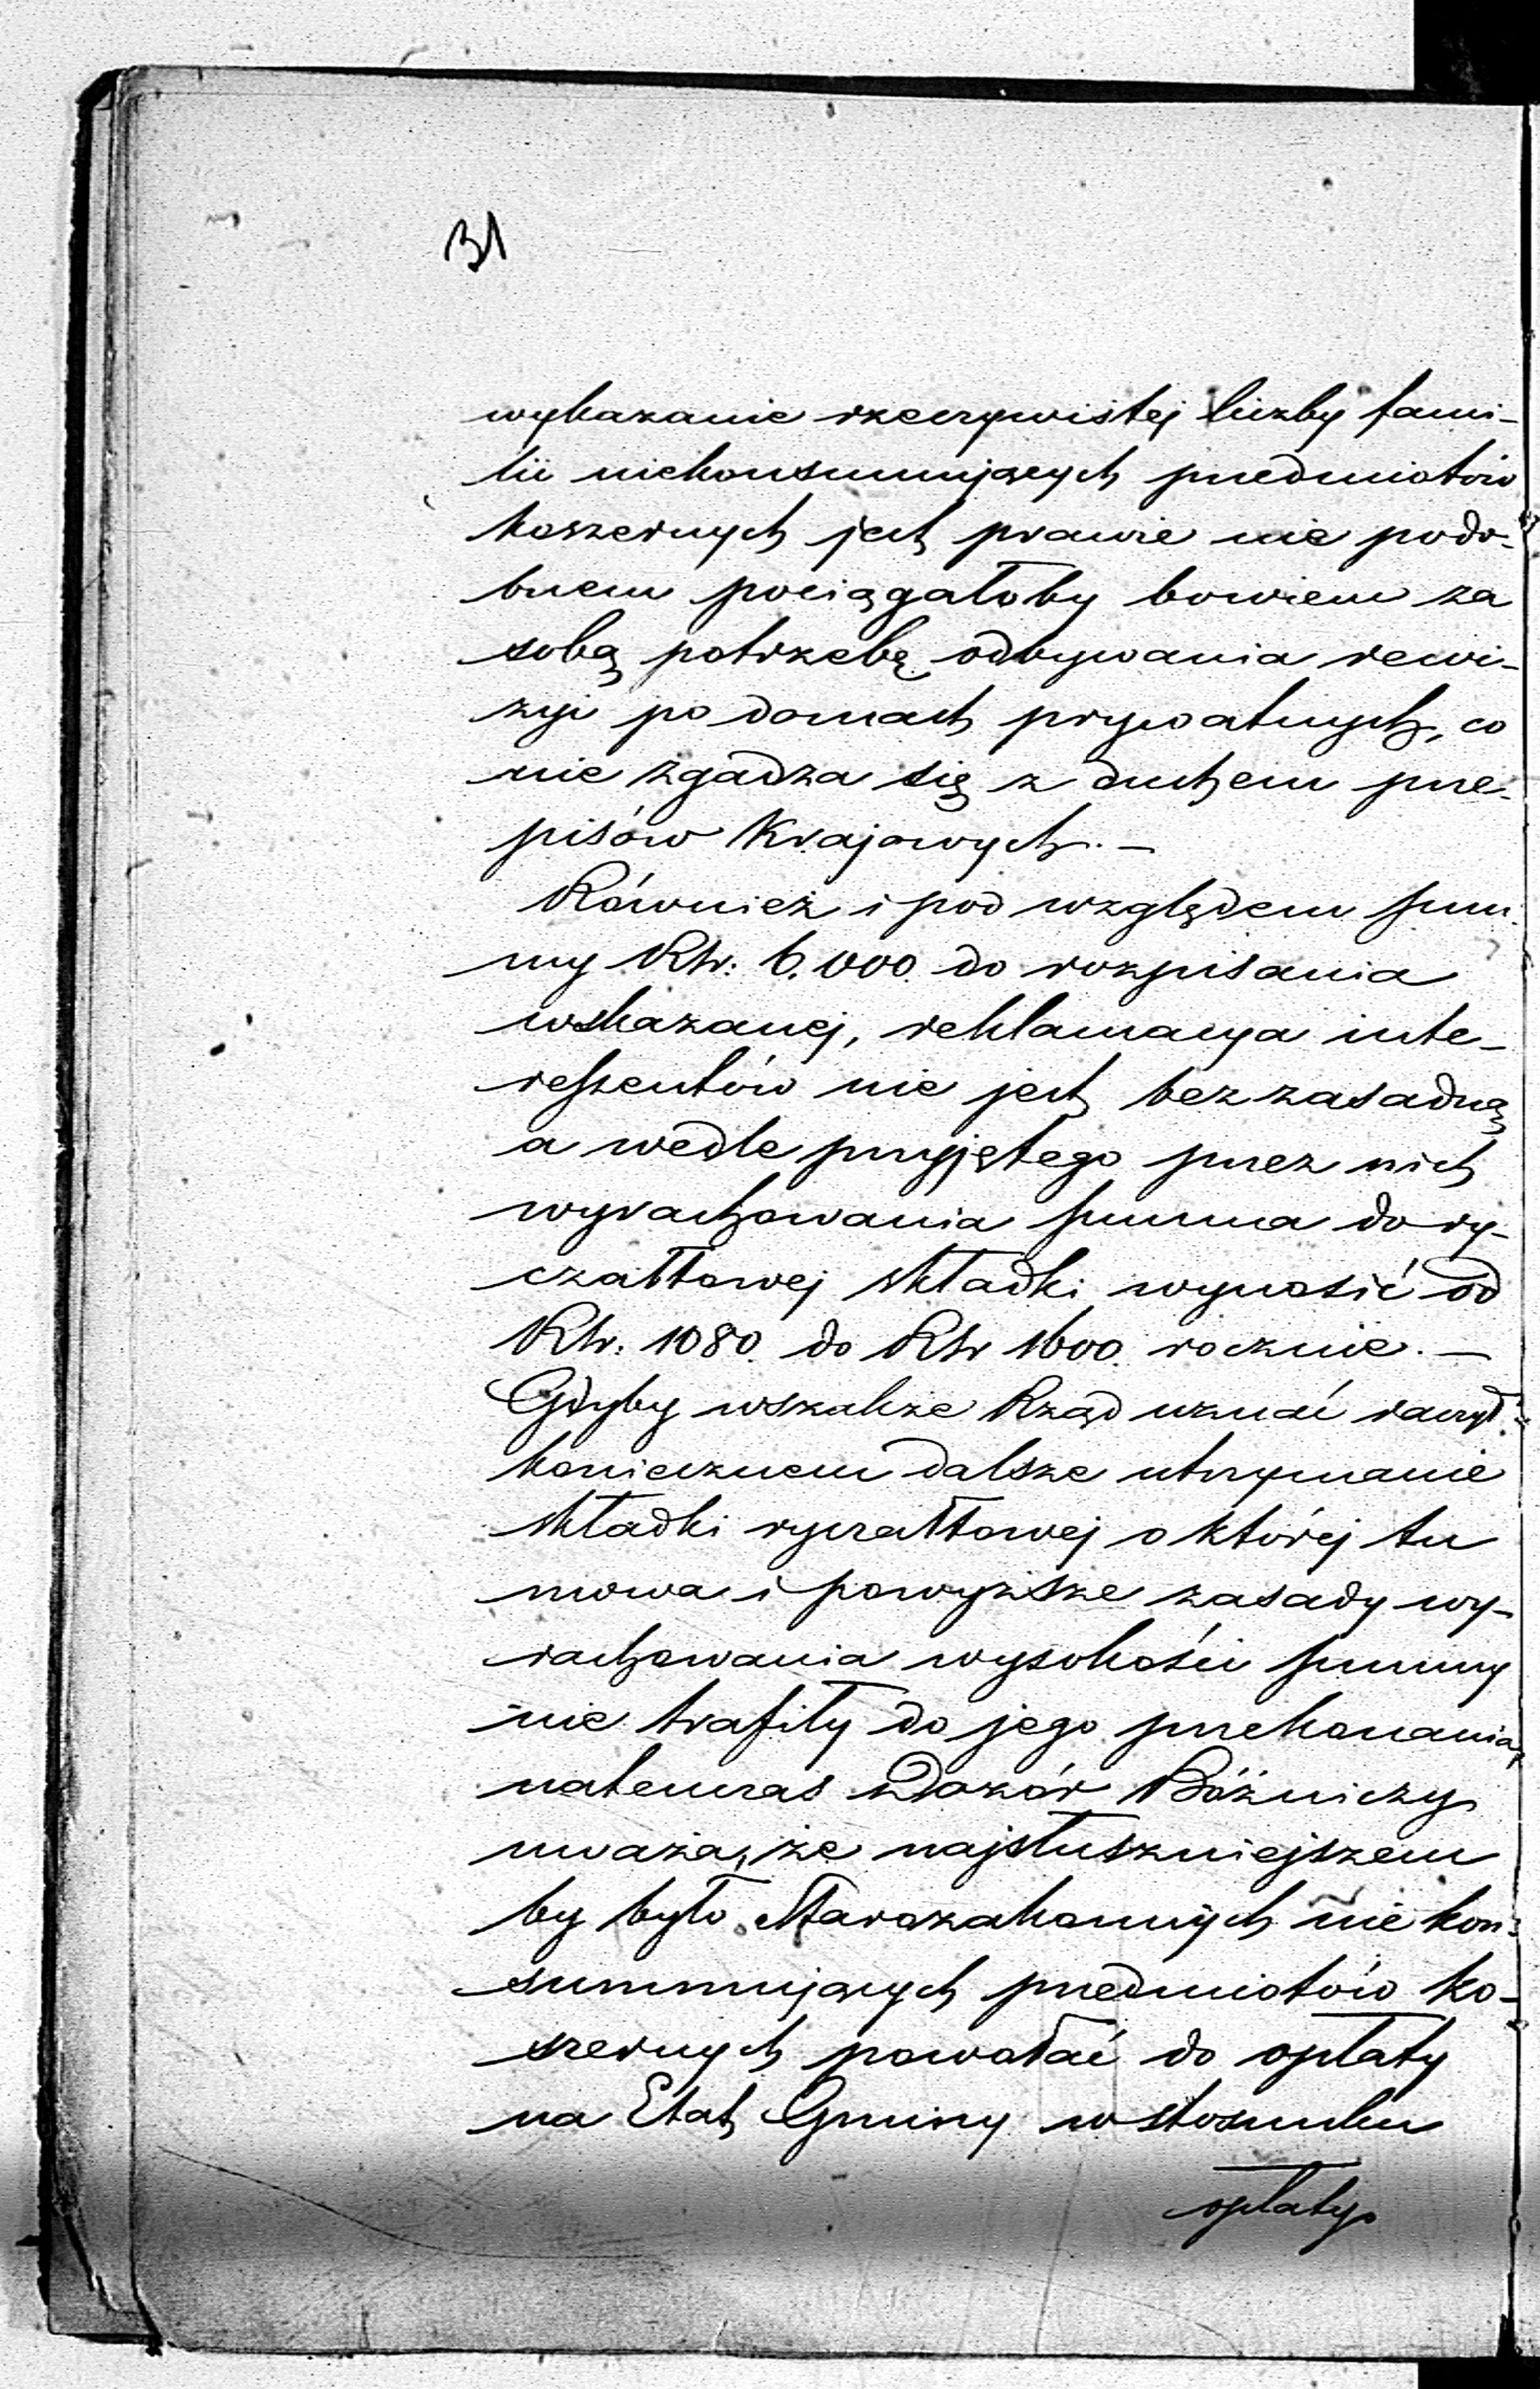 31
wykazanie rzeczywistej liczby fami-
lii niekonsumujących przedmiotów
koszernych jest prawie nie podo-
bnem pociągałoby bowiem za
sobą potrzebę odbywania rewi-
zyi po domach prywatnych, co
nie zgadza się z duchem prze-
pisów Krajowych. —
Również i pod względem sum
my Rsr: 6.000. do rozpisania
wskazanej, reklamacya inte-
ressentów nie jest bezzasadną
a wedle przyjętego przez nich
wyrachowania summa do ry-
czałtowej składki wynosić od
Rsr: 1080. do Rsr 1600. rocznie. —
Gdyby wszakże Rząd uznać raczył
koniecznem dalsze utrzymanie
składki ryczałtowej o której tu
mowa i powyższe zasady wy-
rachowania wysokości summy
nie trafiły do jego przekonania,
natenczas Dozór Bóżniczy
uważa, że najsłuszniejszem
by było Starozakonnych nie kon-
summujących przedmiotów ko-
szernych powołać do opłaty
na Etat Gminy w stosunku
opłaty